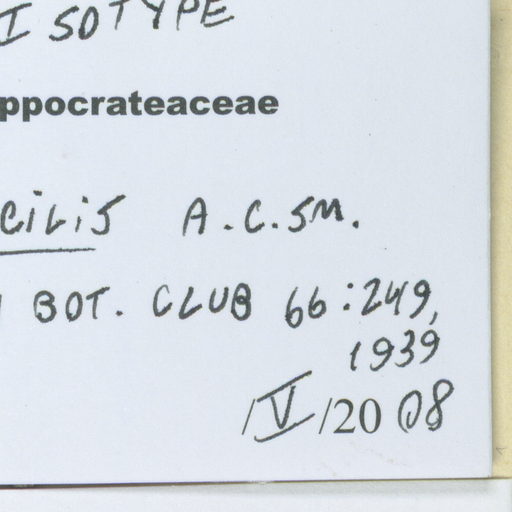 ISOTYPE
ppocrateaceae
cilis A.C.SM.
BOT. CLUB 66:249,
1939
/V/2008